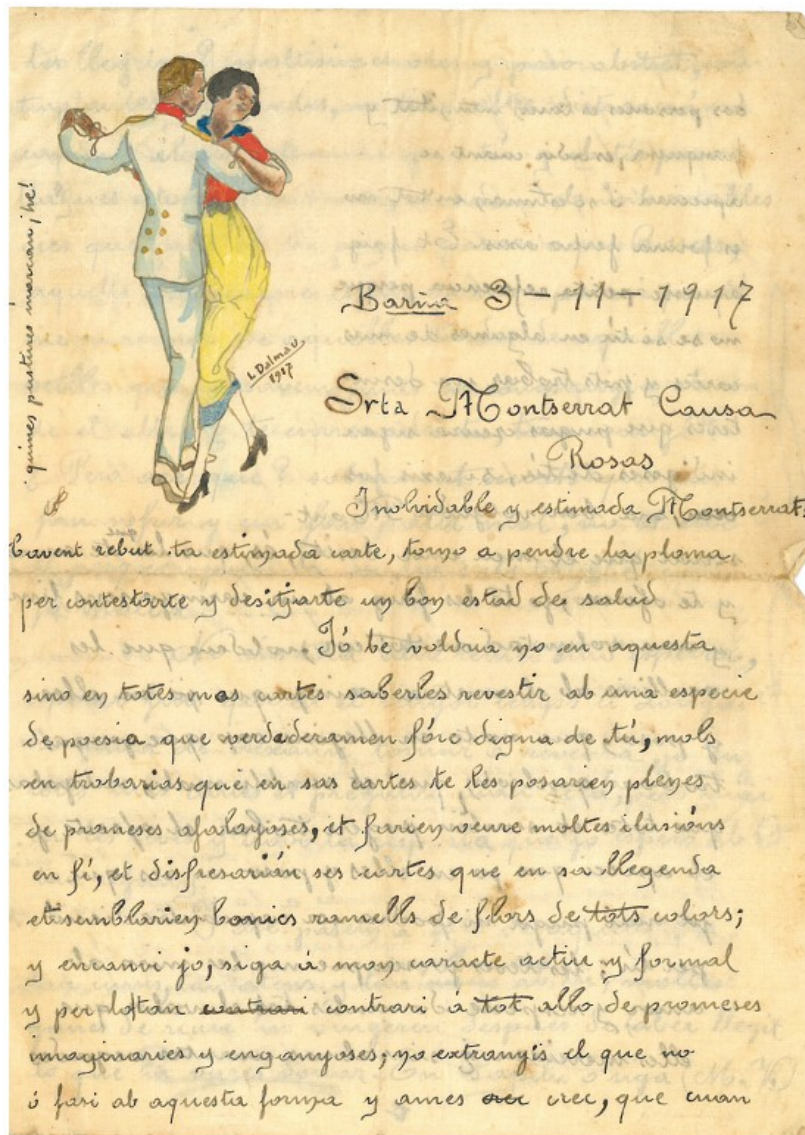 quines pustures marcan, he!
L. Dalmau
1917
Barna 3-11-1917
Srta Montserrat Causa
Rosas
Inolvidable y estimada Montserrat:
havent rebut ta estimada carte, torno a pendre la ploma
per contestarte y desitjarte un bon estad de salud
Jó be voldria no en aquesta
sino en totes mes cartes saberles revestir ab una especie
de poesia que verdaderamen fóre digna de tú, mols
en trobarias que en sas cartes te les posarien plenes
de promeses afalagoses, et farien veure moltes ilusións
en fí, et disfresarián ses cartes que en sa llegenda
et semblarien bonics ramells de flors de tots colors;
y encanvi jo, siga á mon caracte actiu y formal
y per lo tan contrari contrari á tot allo de promeses
imaginaries y enganyoses; no extranyis el que no
ó fasi ab aquesta forma y ames crec, que cuan